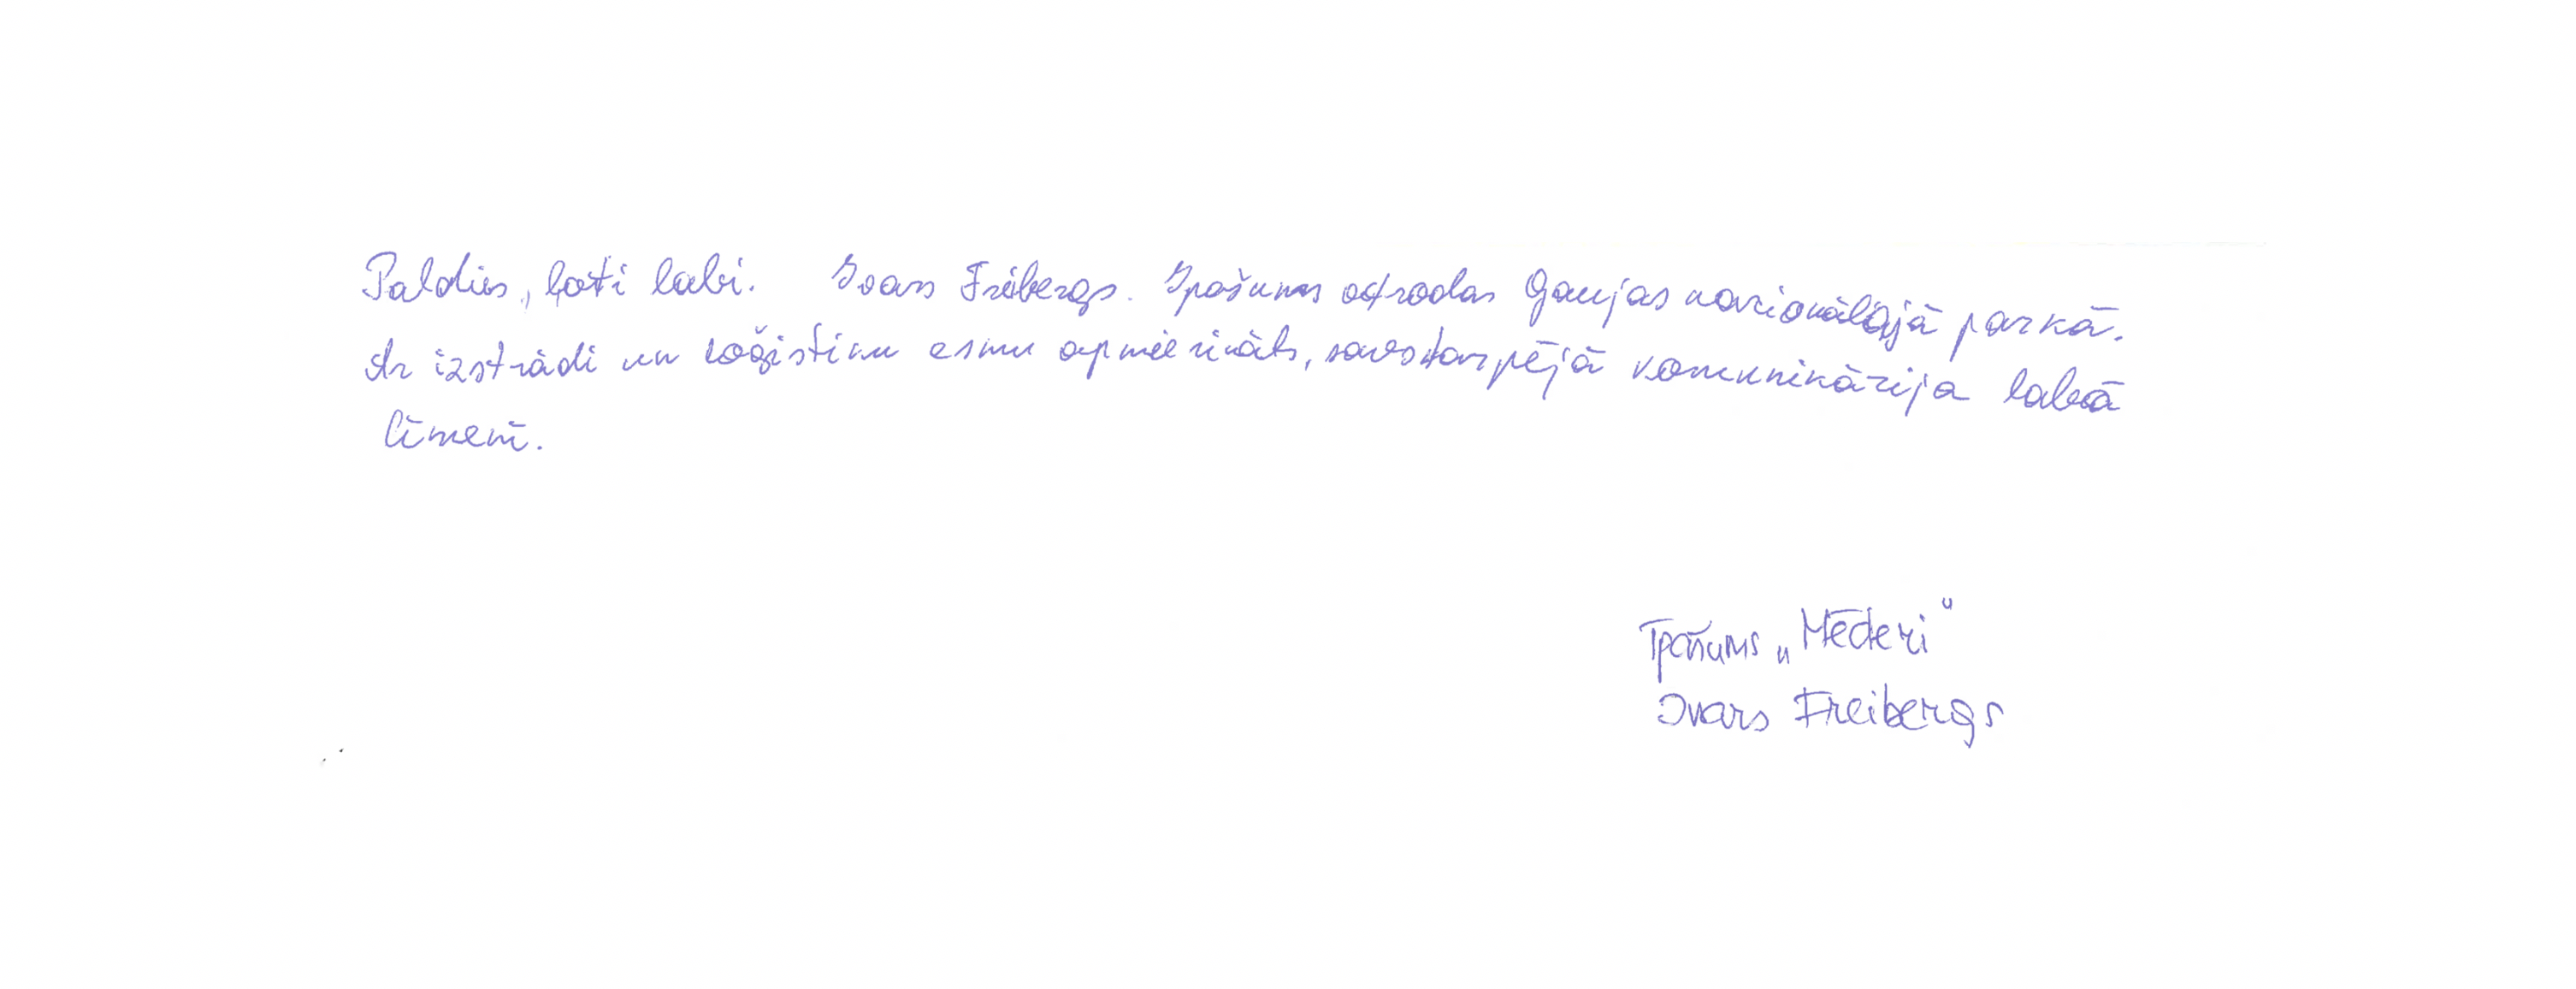 Paldies, ļoti labi. Ivars Freibergs. Īpašums atrodas Gaujas nacionālajā parkā.
Ar izstrādi un loģistiku esmu apmierināts, savstarpējā komunikācija labā
līmenī.
Īpašums „Mēderi“
Ivars Freibergs